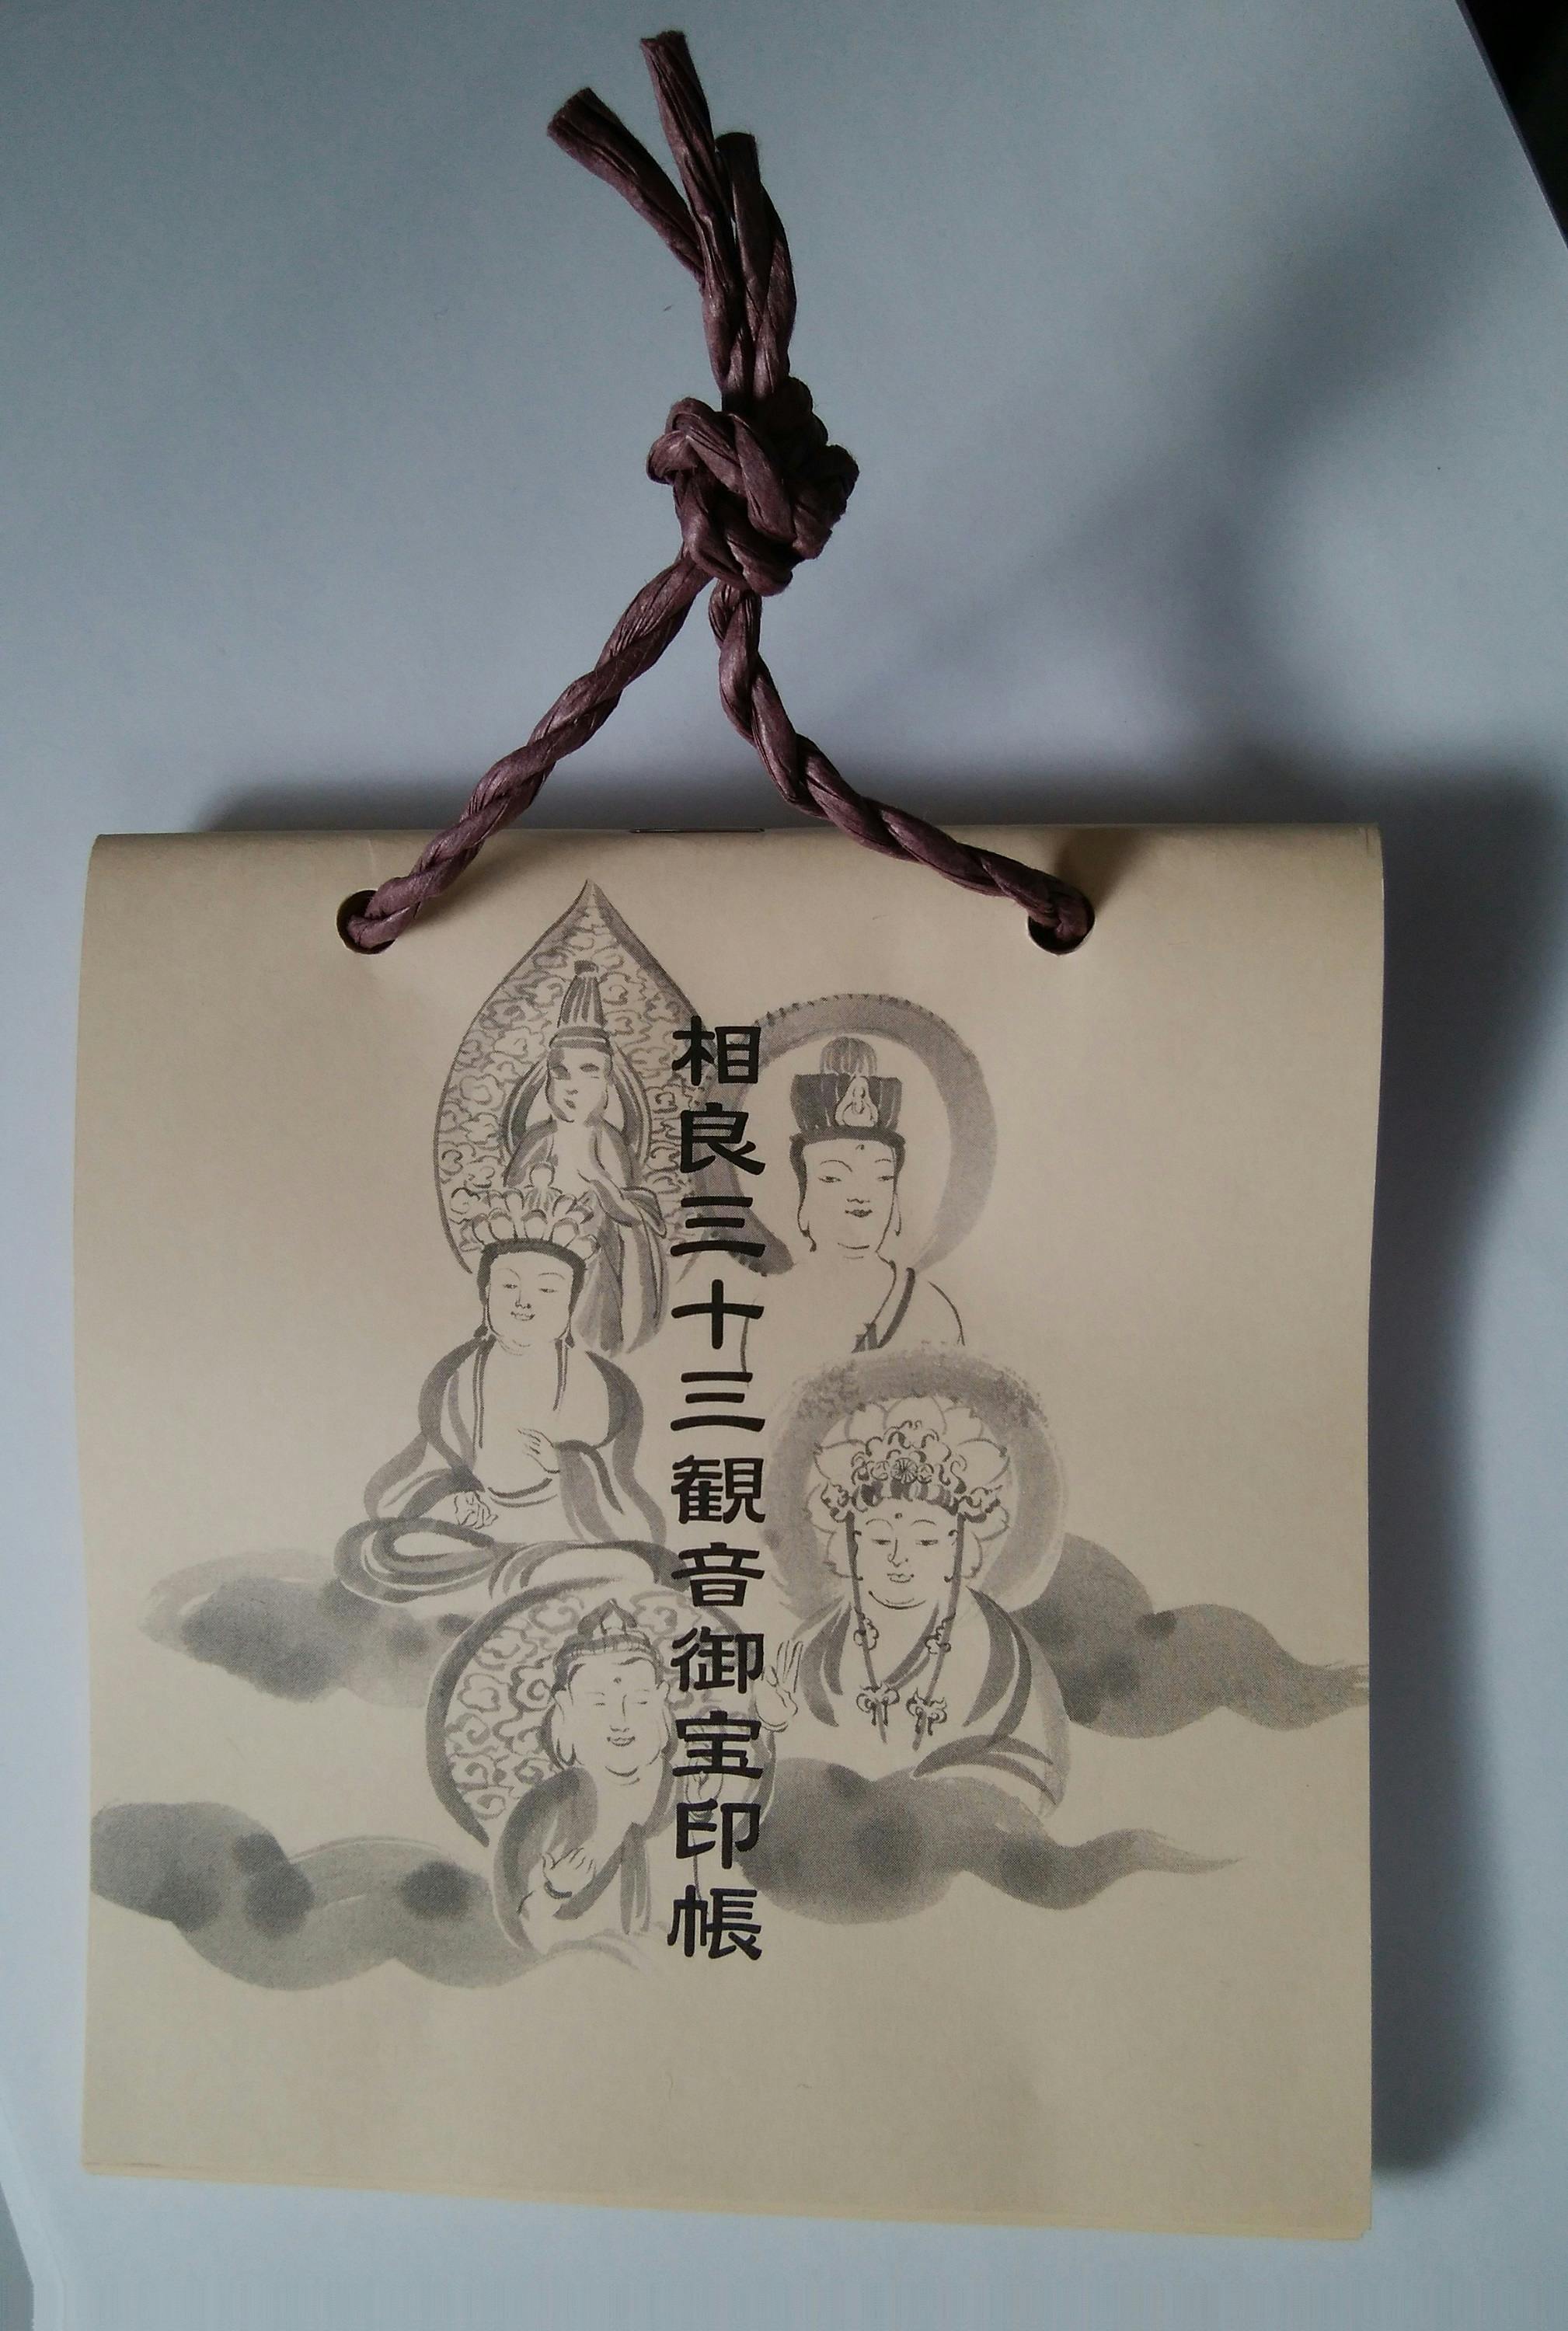 相良三十三観音御宝印帳